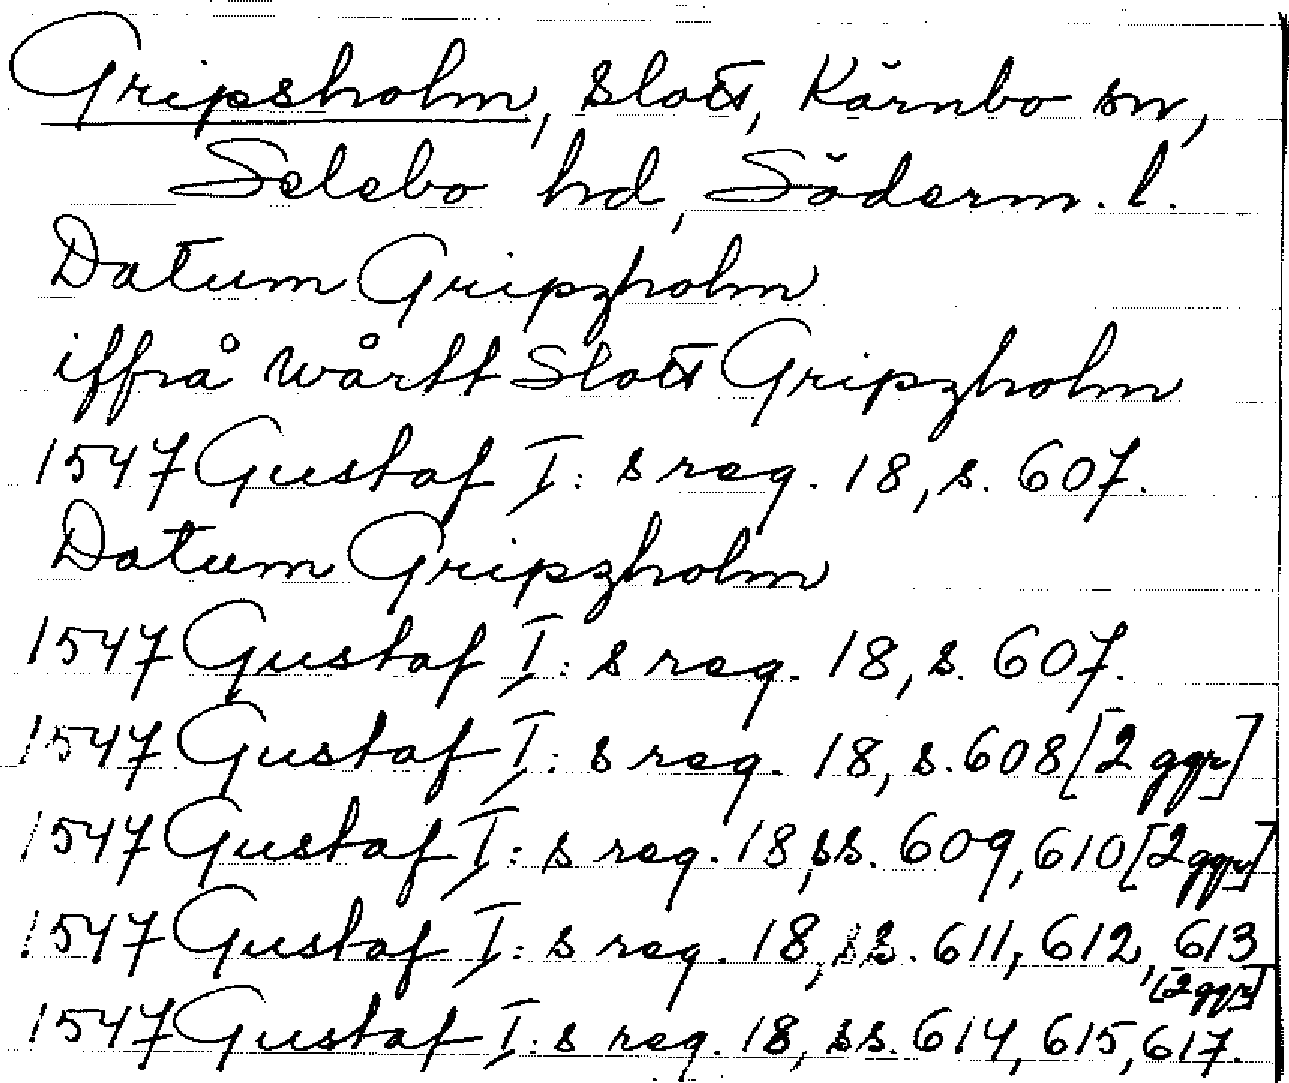 Gripsholm, slott, Kärnbo sn,
Selebo hd, Söderm. l.
Datum Gripzholm
iffrå wårtt Slott Gripzholm
1547 Gustaf I: s reg. 18, s. 607.
Datum Gripzholm
1547 Gustaf I: s reg. 18, s. 607.
1547 Gustaf I: s reg. 18, s. 608 [2 ggr]
1547 Gustaf I: s reg. 18, ss. 609, 610 [2 ggr]
1547 Gustaf I: s reg. 18, ss. 611, 612, 613
[2 ggr]
1547 Gustaf I: s reg. 18, ss. 614, 615, 617.